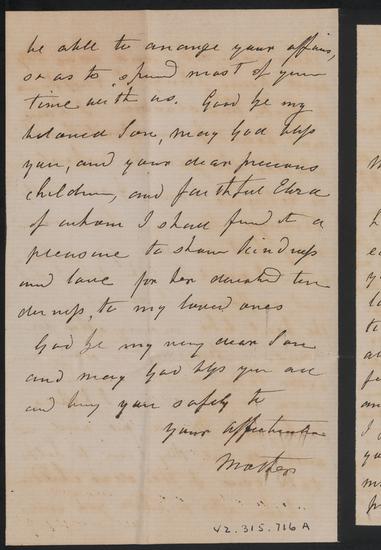 be able to arrange your affairs,
so as to spend most of your
time with us. Good bye my
beloved Son, may God bless
you, and your dear precious
children, and faithful Eliza
of whom I shall find it a
pleasure to show kindness
and love for her devoted ten
derness, to my loved ones
Good bye my very dear Son
and may God bless you all
and bring you safely to
your affectionate
Mother
V2.315.716A